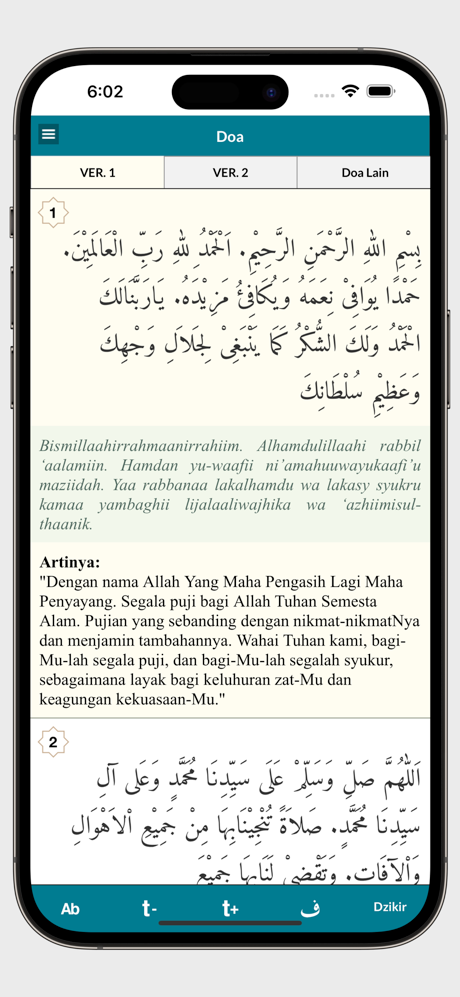 6:02
Doa
VER. 1
VER. 2
Doa Lain
1
بِسْمِ اللهِ الرَّحْمَنِ الرَّحِيْمِ. اَلْحَمْدُ لِلهِ رَبِّ الْعَالَمِيْنَ.
حَمْدًا يُوَافِىْ نِعَمَهُ وَيُكَافِئُ مَزِيْدَهُ. يَارَبَّنَالَكَ
الْحَمْدُ وَلَكَ الشُّكْرُ كَمَا يَنْبَغِىْ لِجَلاَلِ وَجْهِكَ
وَعَظِيْمِ سُلْطَانِكَ
Bismillaahirrahmaanirrahiim. Alhamdulillaahi rabbil
‘aalamiin. Hamdan yu-waafii ni’amahuuwayukaafi’u
maziidah. Yaa rabbanaa lakalhamdu wa lakasy syukru
kamaa yambaghii lijalaaliwajhika wa ‘azhiimisul-
thaanik.
Artinya:
"Dengan nama Allah Yang Maha Pengasih Lagi Maha
Penyayang. Segala puji bagi Allah Tuhan Semesta
Alam. Pujian yang sebanding dengan nikmat-nikmatNya
dan menjamin tambahannya. Wahai Tuhan kami, bagi-
Mu-lah segala puji, dan bagi-Mu-lah segalah syukur,
sebagaimana layak bagi keluhuran zat-Mu dan
keagungan kekuasaan-Mu."
2
اَللّٰهُمَّ صَلِّ وَسَلِّمْ عَلَى سَيِّدِنَا مُحَمَّدٍ وَعَلَى آلِ
سَيِّدِنَا مُحَمَّدٍ. صَلاَةً تُنْجِيْنَابِهَا مِنْ جَمِيْعِ اْلاَهْوَالِ
وَاْلآفَاتِ. وَتَقْضِىْ لَنَابِهَا جَمِيْعَ
Ab
t-
t+
ف
Dzikir